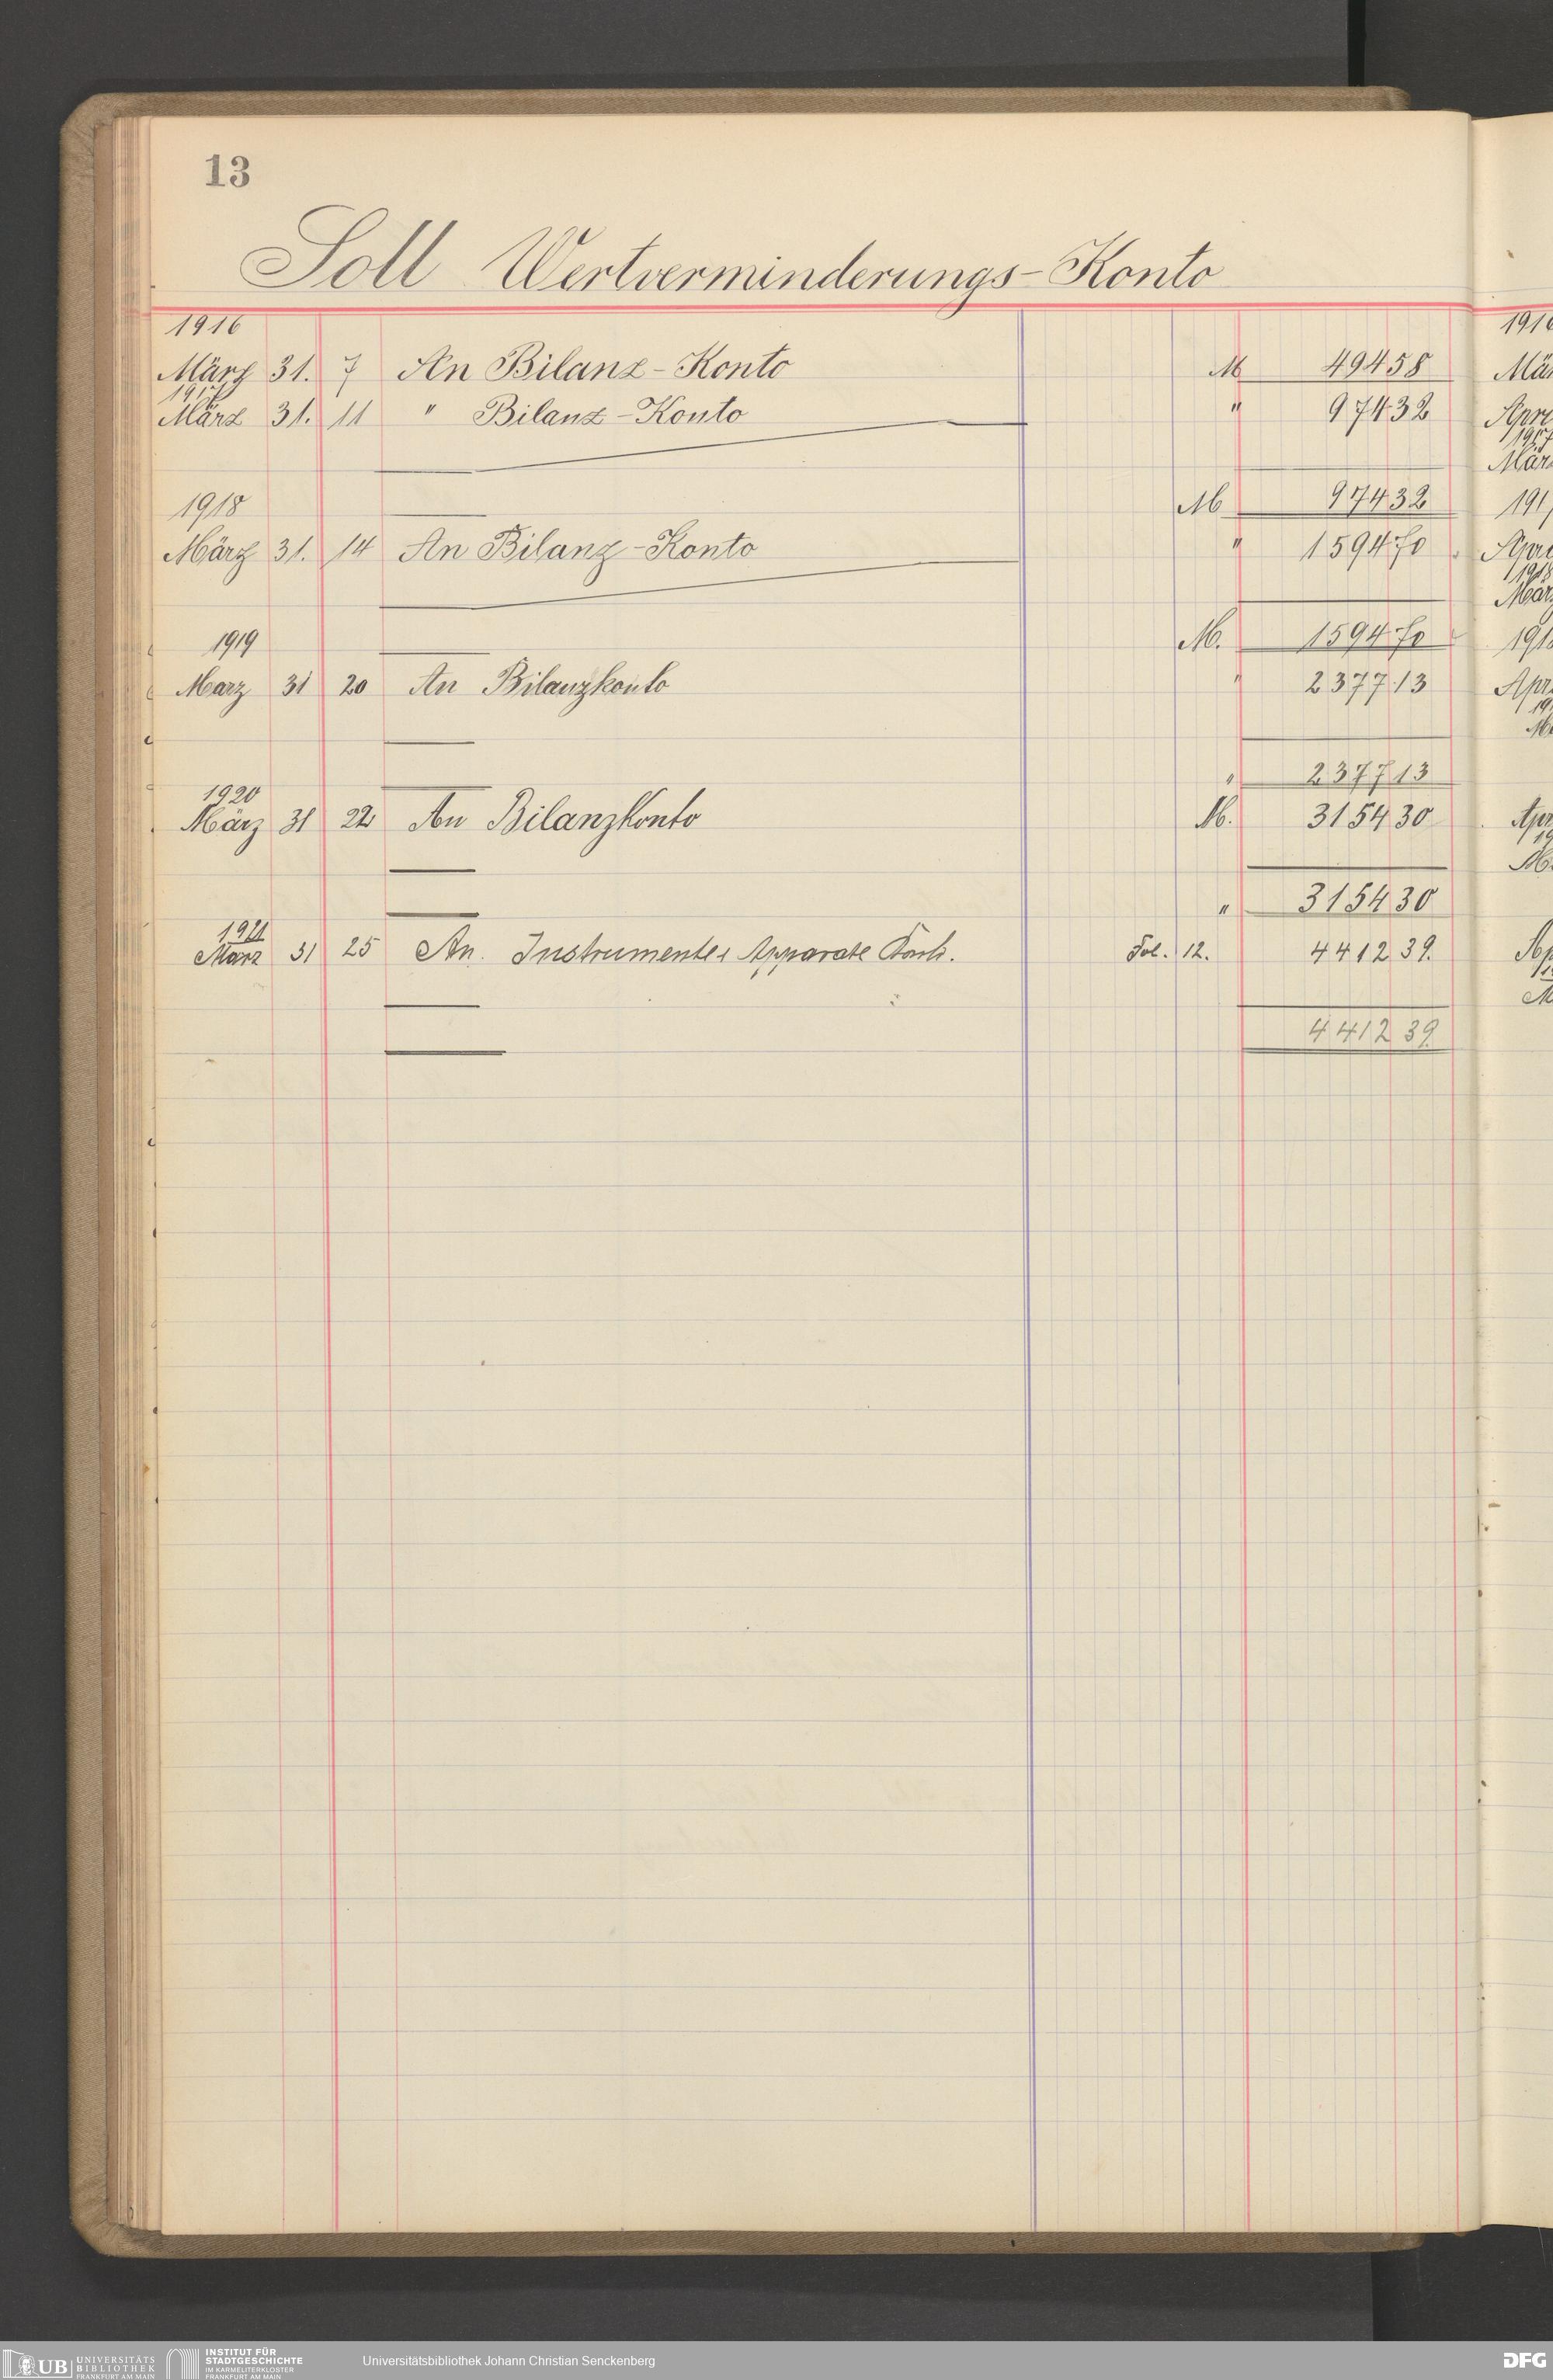 13
Soll Wertverminderungs-Konto
1916
März 31. 7 An Bilanz-Konto M 494 58
1917
März 31. 11 " Bilanz-Konto " 974 32
M 974 32
1918
März 31. 14 An Bilanz-Konto " 1594 70
M. 1594 70
1919
Marz 31 20 An Bilanzkonto " 2377 13
" 2377 13
1920
März 31 22 An Bilanzkonto M. 3154 30
" 3154 30
1921
März 31 25 An. Instrumente & Apparate Konto. Fol. 12. 4412 39.
4412 39
1916
Mär
Apri
1917
Mär
191
Apri
1918
Mär
191
Apr
19
M
Apr
19
M
Ap
M
UB UNIVERSITÄTS
BIBLIOTHEK
FRANKFURT AM MAIN
INSTITUT FÜR
STADTGESCHICHTE
IM KARMELITERKLOSTER
FRANKFURT AM MAIN
Universitätsbibliothek Johann Christian Senckenberg
DFG